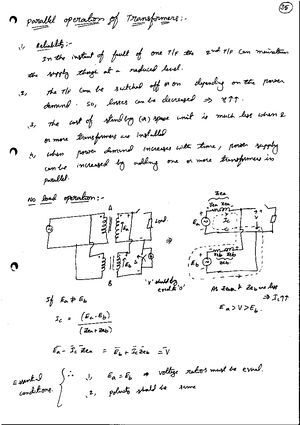 25
Parallel operation of Transformers:-
1, Reliability:-
In the instant of fault of one T/F the 2nd T/F can maintain
the supply though at a reduced level.
2, The T/F can be switched off or on depending on the power
demand. So, losses can be decreased ⇒ η↑↑.
3, The cost of standby (a) spare unit is much less when 2
or more transformers are installed
4, when power demand increases with time, power supply
can be increased by adding one or more transformers in
parallel.
No load operation:-
A
Ea
Load
B
Eb
⇒
Zea
Ea
Ic
V
Eb
If Ea ≠ Eb
Ic = (Ea-Eb) / (Zea+Zeb)
As Zea & Zeb are less
⇒ Ic↑↑
Ea > V > Eb.
Ea - Ic Zea = Eb + Ic Zeb = V
Essential
conditions.
∴ 1, Ea = Eb ⇒ voltage ratios must be equal.
2, polarity should be same